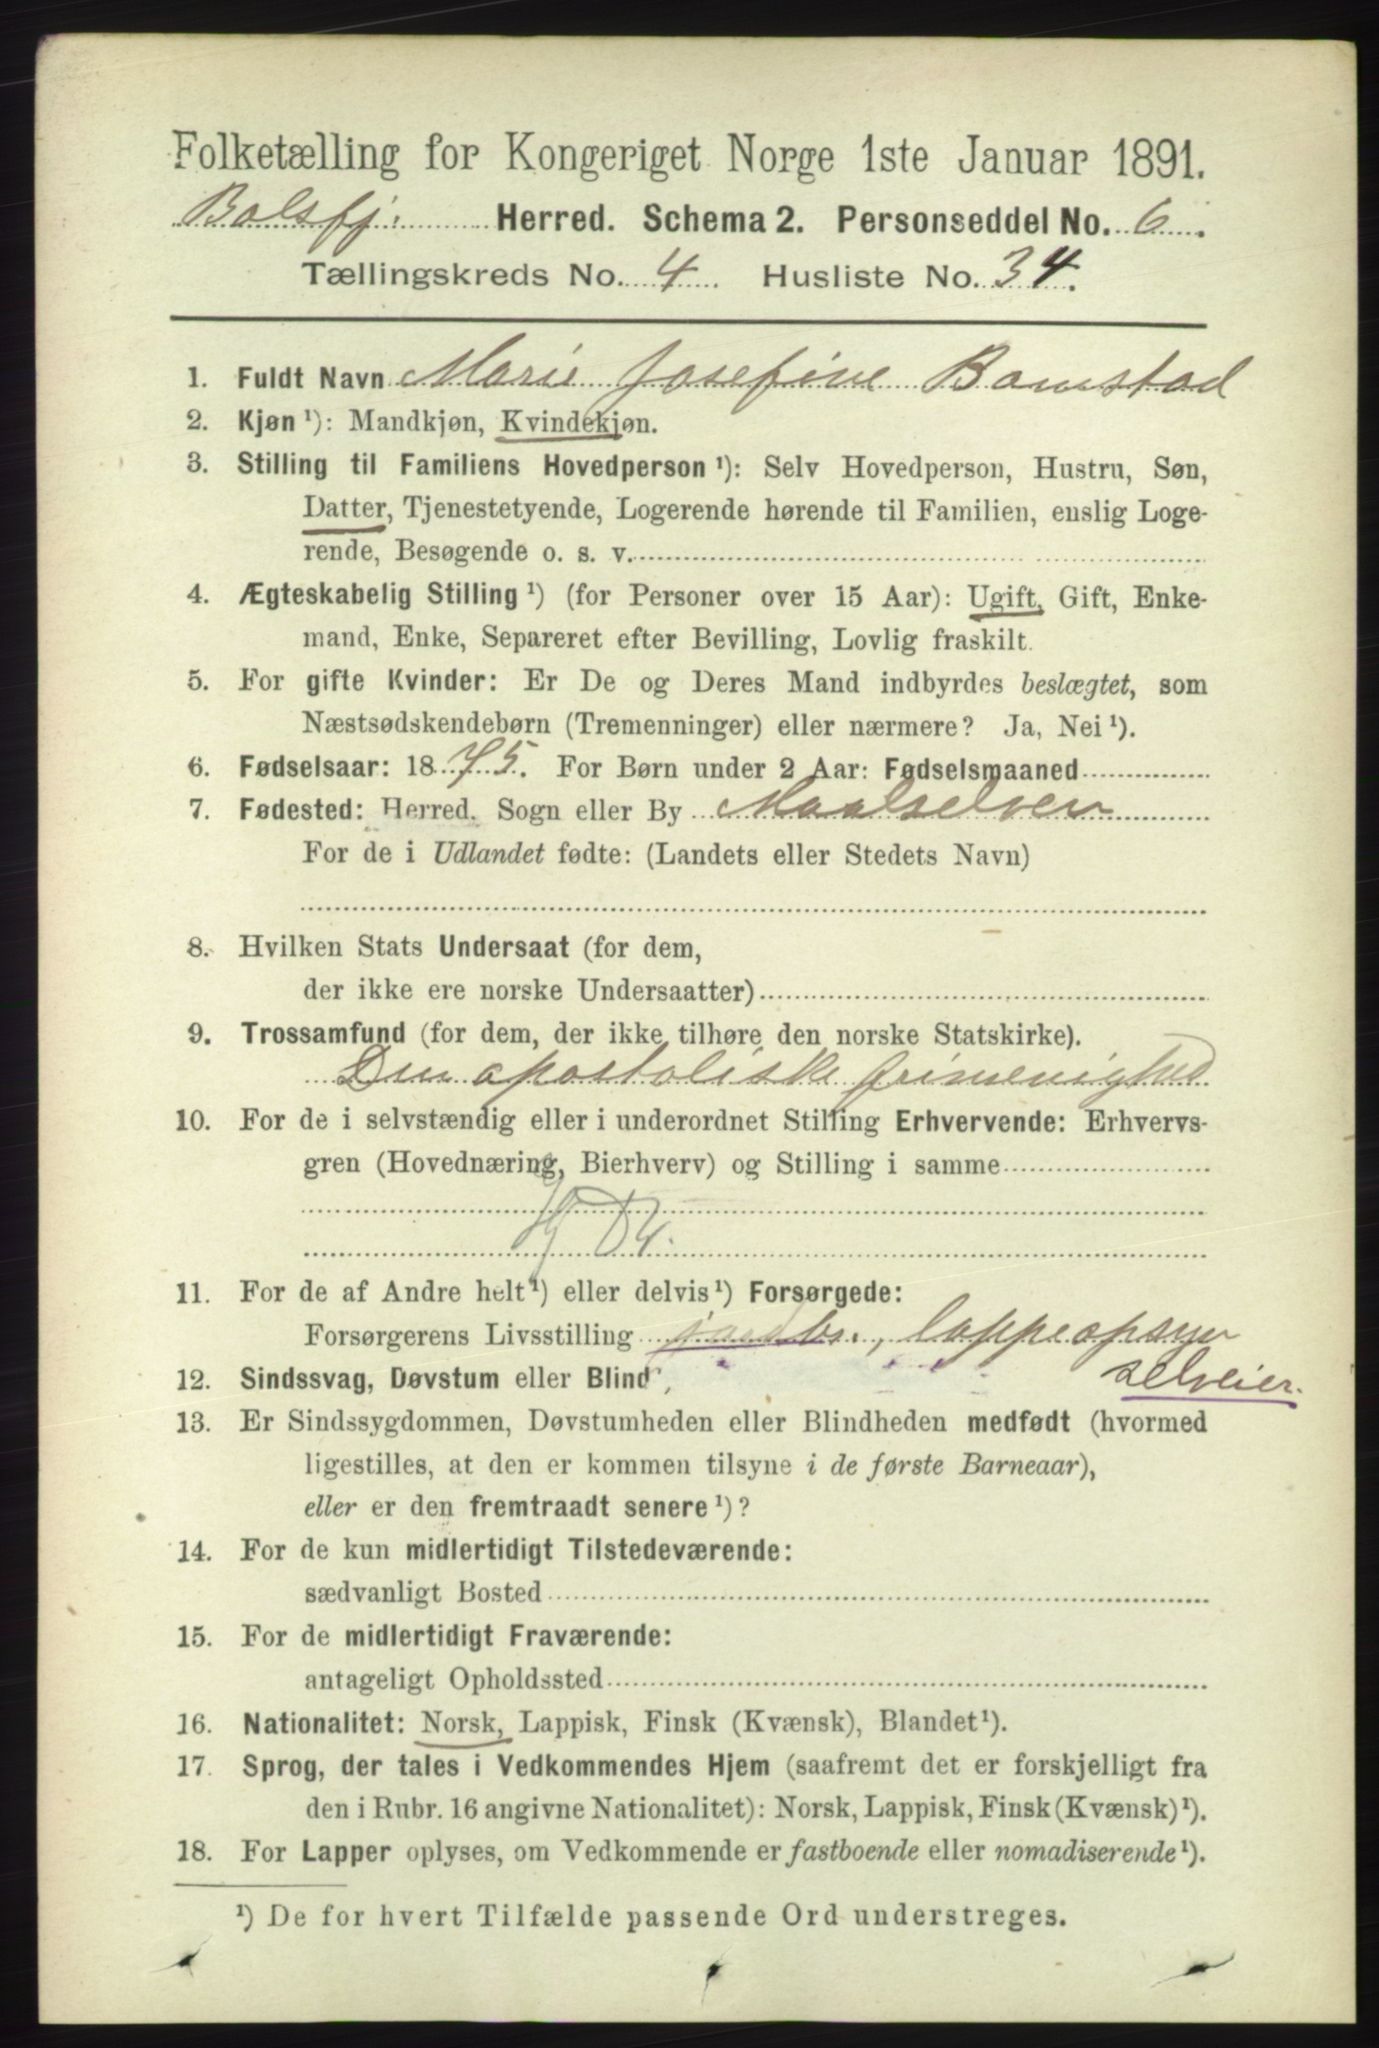 Folketælling for Kongeriget Norge 1ste Januar 1891.
Balsfj. Herred. Schema 2. Personseddel No. 6.
Tællingskreds No. 4. Husliste No. 34.
1. Fuldt Navn Marie Josefine Bomstad
2. Kjøn ¹): Mandkjøn, Kvindekjøn.
3. Stilling til Familiens Hovedperson ¹): Selv Hovedperson, Hustru, Søn,
Datter, Tjenestetyende, Logerende hørende til Familien, enslig Loge-
rende, Besøgende o. s. v.
4. Ægteskabelig Stilling ¹) (for Personer over 15 Aar): Ugift, Gift, Enke-
mand, Enke, Separeret efter Bevilling, Lovlig fraskilt.
5. For gifte Kvinder: Er De og Deres Mand indbyrdes beslægtet, som
Næstsødskendebørn (Tremenninger) eller nærmere? Ja, Nei ¹).
6. Fødselsaar: 1875. For Børn under 2 Aar: Fødselsmaaned
7. Fødested: Herred, Sogn eller By Maalselven
For de i Udlandet fødte: (Landets eller Stedets Navn)
8. Hvilken Stats Undersaat (for dem,
der ikke ere norske Undersaatter)
9. Trossamfund (for dem, der ikke tilhøre den norske Statskirke).
Den apostoliske frimenighed
10. For de i selvstændig eller i underordnet Stilling Erhvervende: Erhvervs-
gren (Hovednæring, Bierhverv) og Stilling i samme
11. For de af Andre helt ¹) eller delvis ¹) Forsørgede:
Forsørgerens Livsstilling jordbr., lappeopsyn
selveier.
12. Sindssvag, Døvstum eller Blind,
13. Er Sindssygdommen, Døvstumheden eller Blindheden medfødt (hvormed
ligestilles, at den er kommen tilsyne i de første Barneaar),
eller er den fremtraadt senere ¹)?
14. For de kun midlertidigt Tilstedeværende:
sædvanligt Bosted
15. For de midlertidigt Fraværende:
antageligt Opholdssted
16. Nationalitet: Norsk, Lappisk, Finsk (Kvænsk), Blandet ¹).
17. Sprog, der tales i Vedkommendes Hjem (saafremt det er forskjelligt fra
den i Rubr. 16 angivne Nationalitet): Norsk, Lappisk, Finsk (Kvænsk) ¹).
18. For Lapper oplyses, om Vedkommende er fastboende eller nomadiserende ¹).
¹) De for hvert Tilfælde passende Ord understreges.